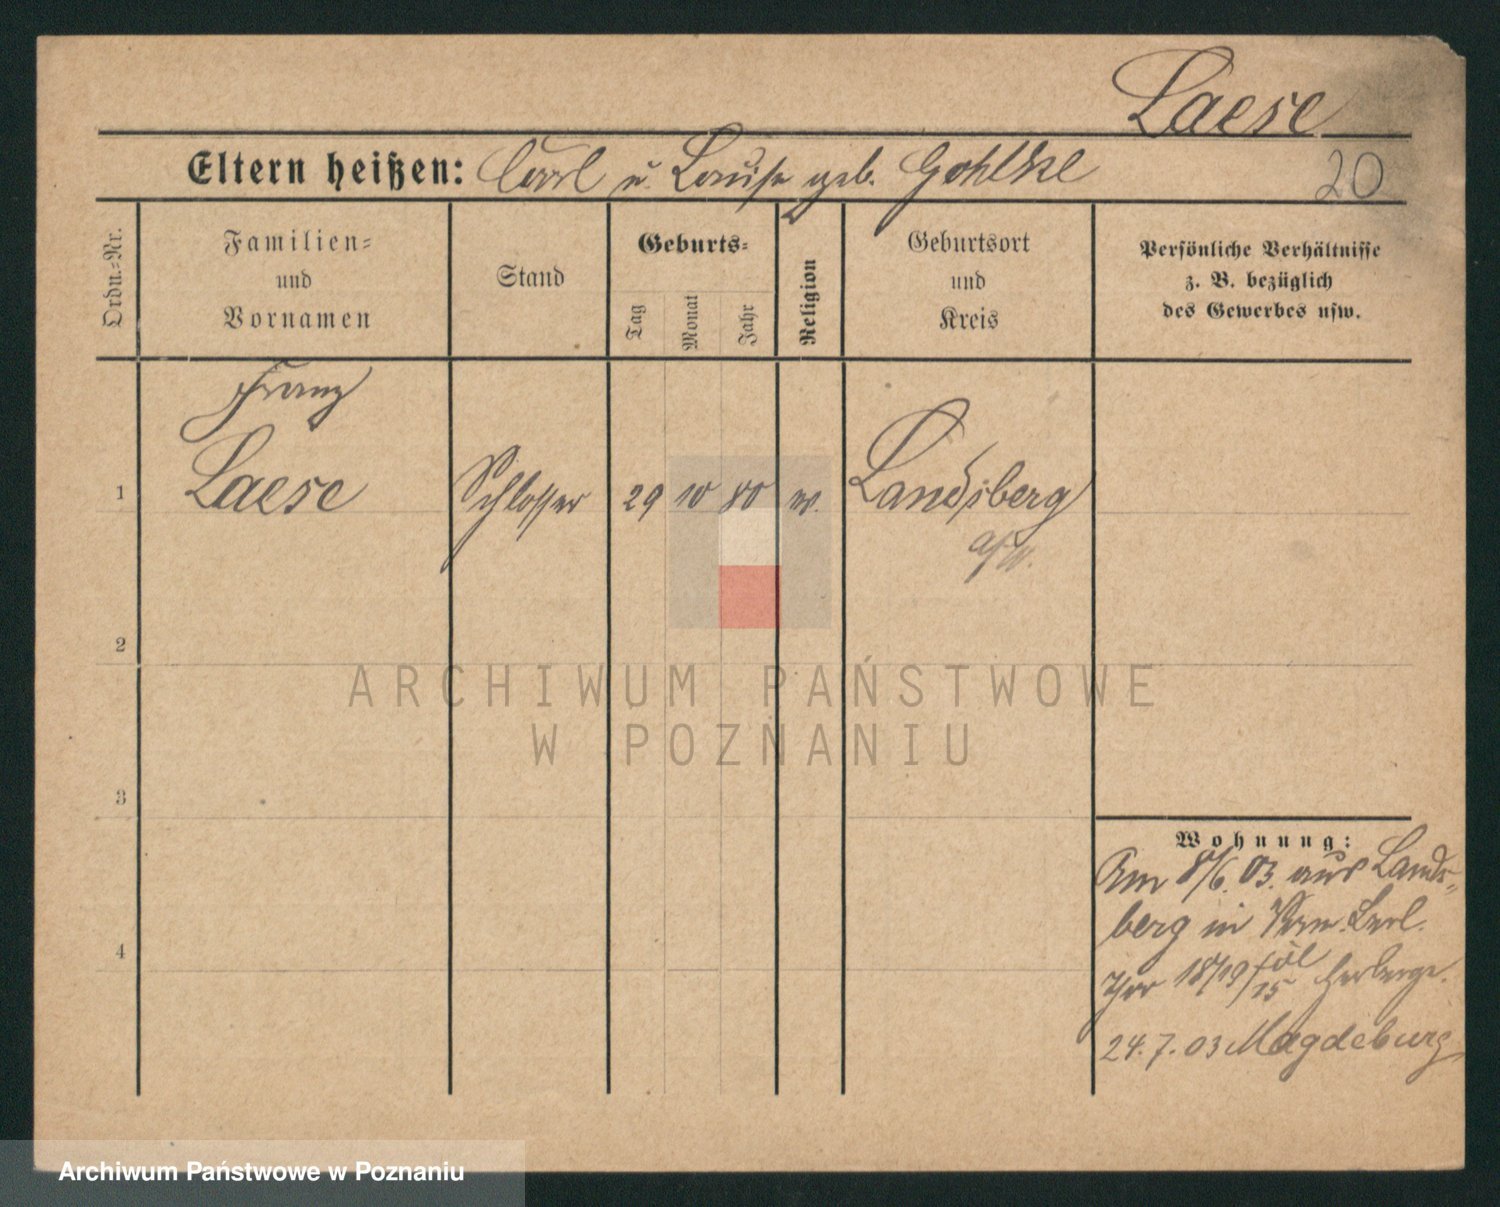 Laese
Eltern heißen: Carl u. Louise geb. Gohlke
20
Ordn.-Nr.
Familien-
und
Vornamen
Stand
Geburts-
Tag
Monat
Jahr
Religion
Geburtsort
und
Kreis
Persönliche Verhältnisse
z. B. bezüglich
des Gewerbes usw.
Franz
1 Laese Schlosser 29 10 80 Landsberg
a/W.
2
3
4
Wohnung:
Am 8/6. 03. aus Lands-
berg in
18/19 Herberge.
24. 7. 03 Magdeburg
ARCHIWUM PAŃSTWOWE
W POZNANIU
Archiwum Państwowe w Poznaniu